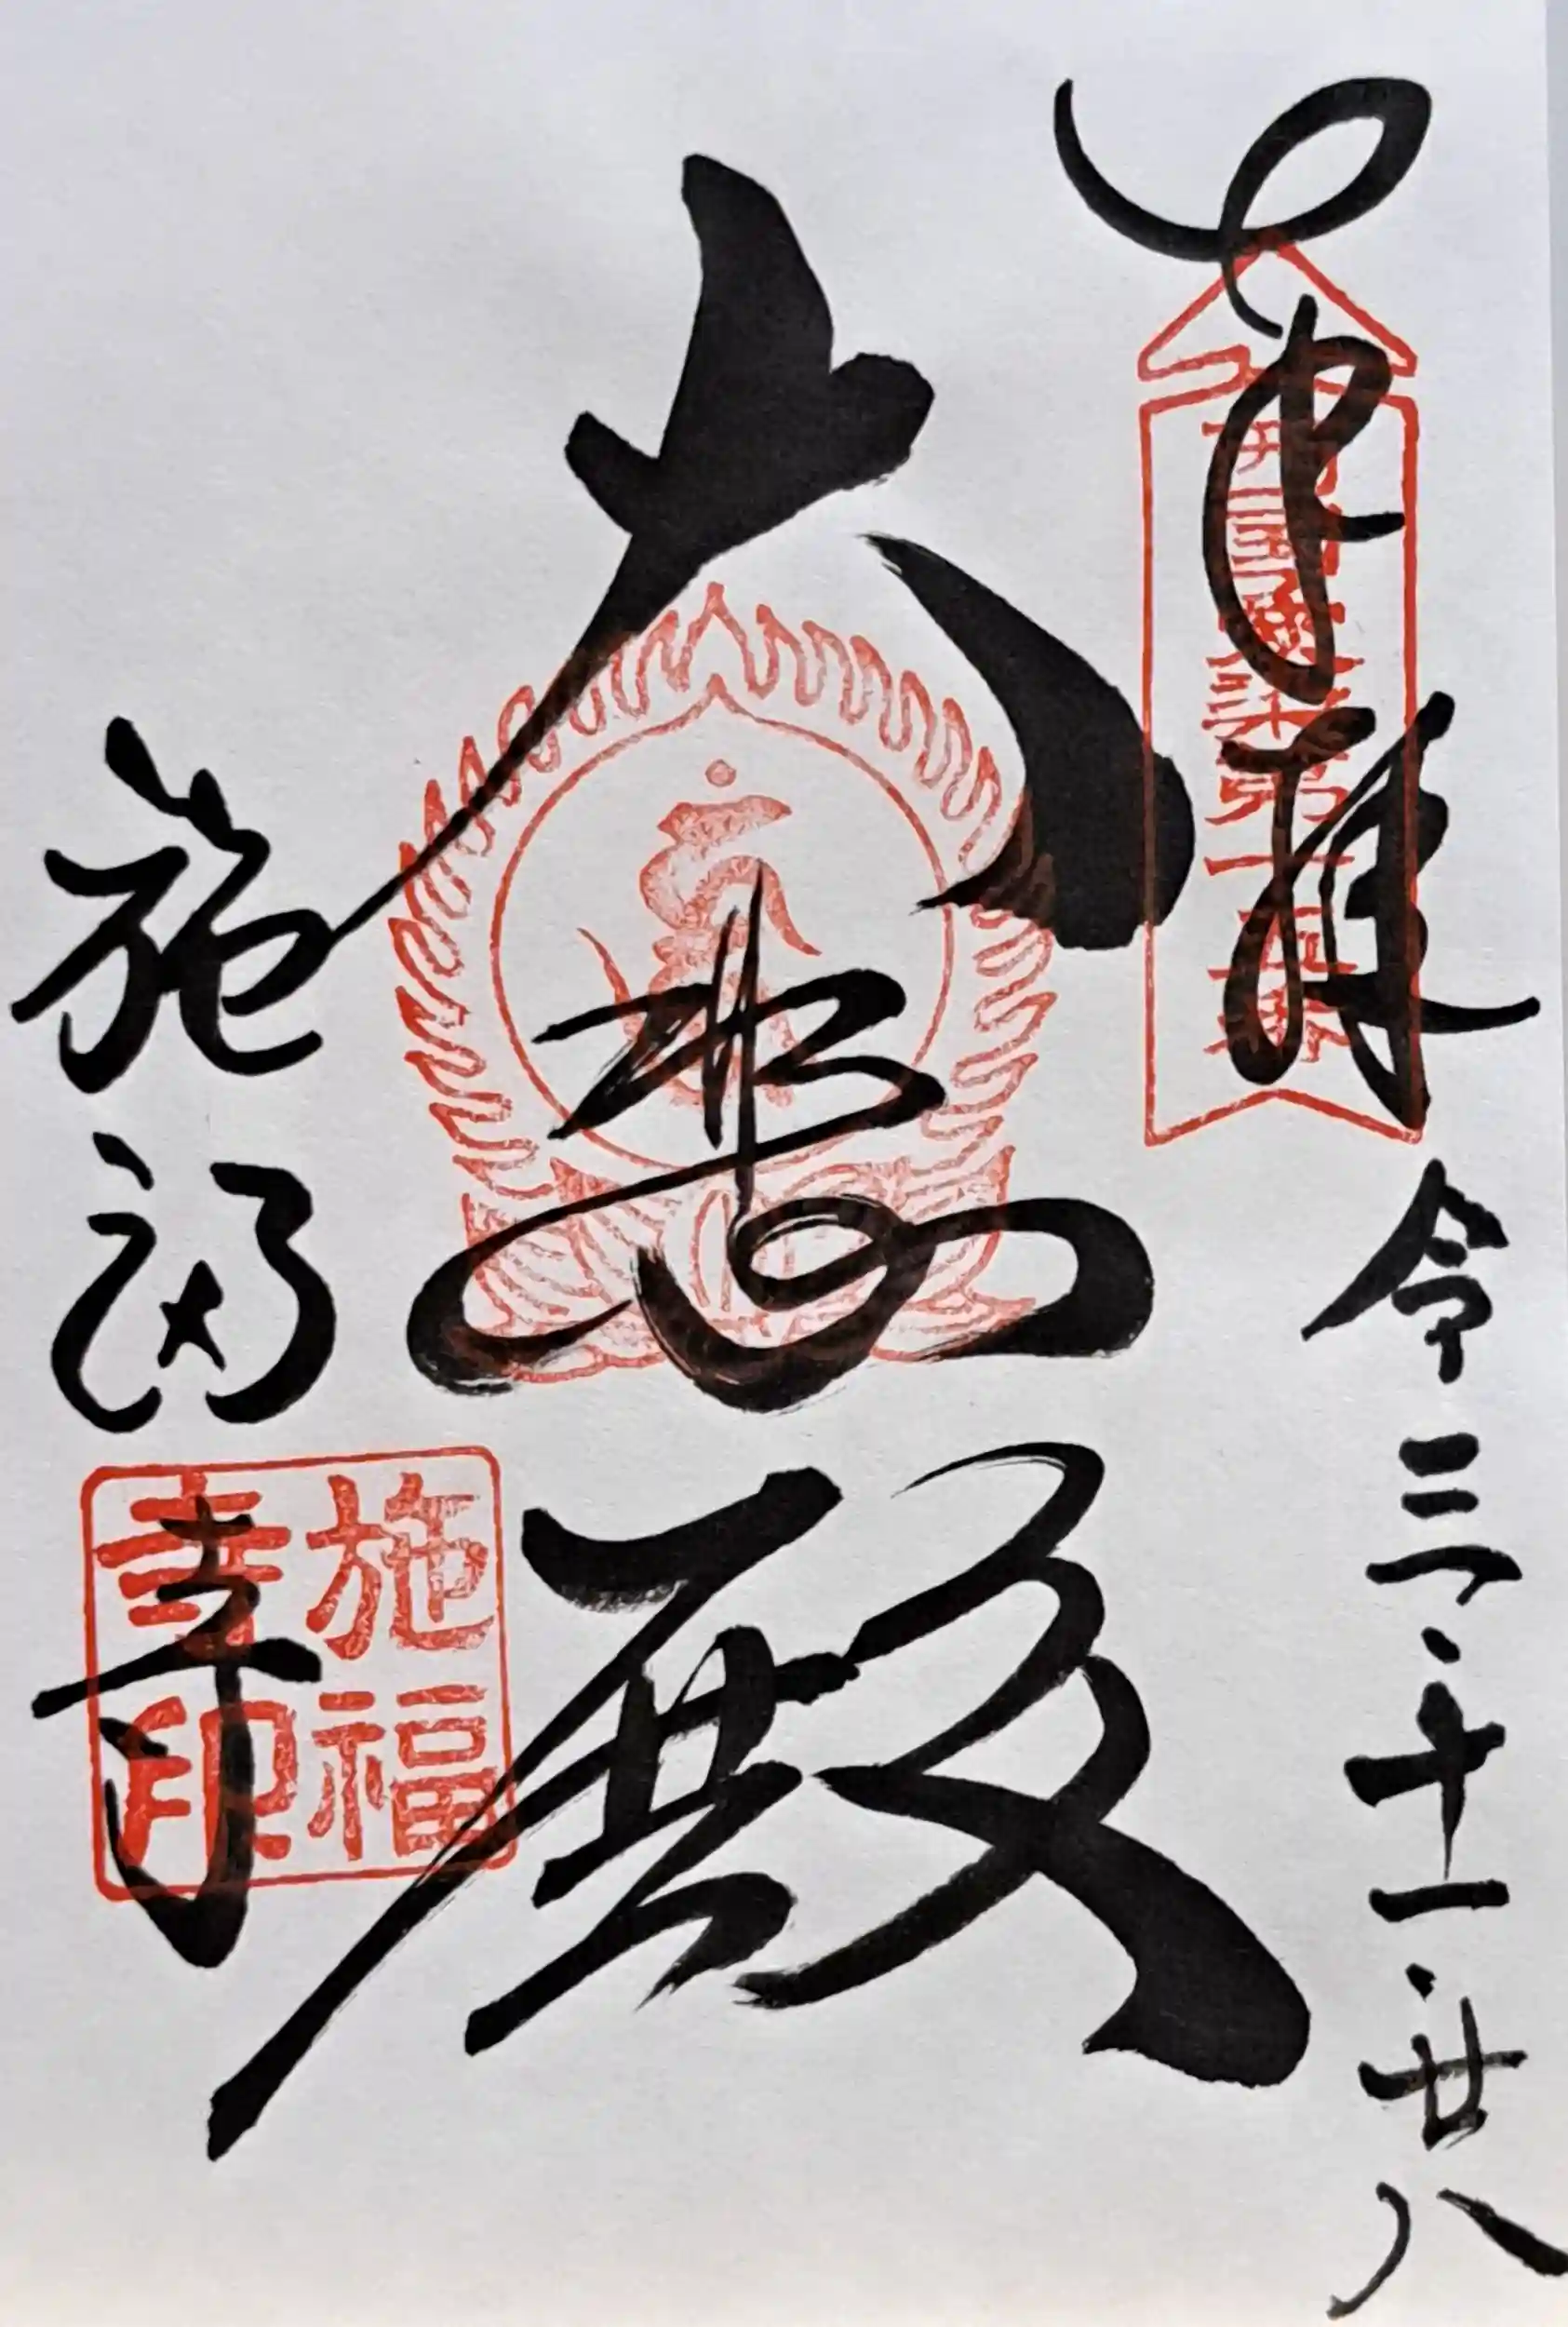 奉拝
令三・十一・廿八
大悲殿
施福寺
施福
寺印